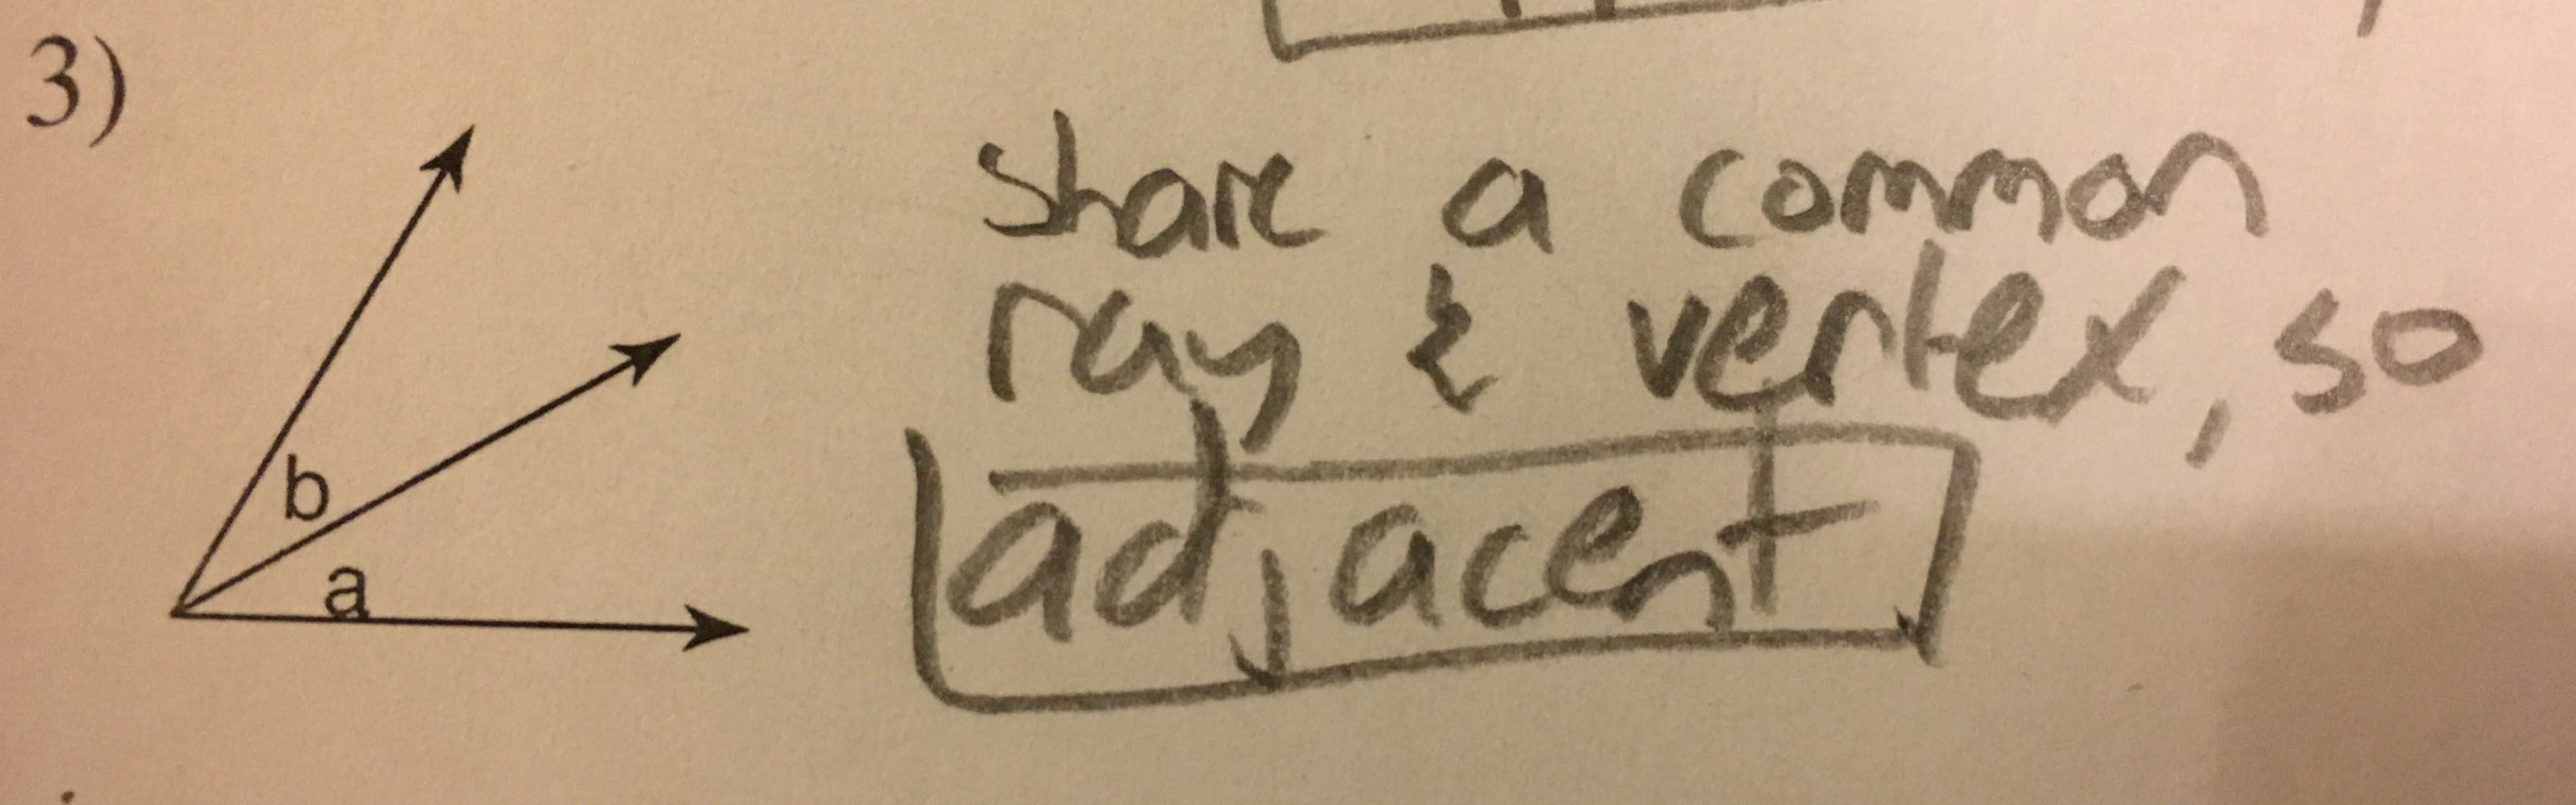 3)
share a common
ray & vertex, so
adjacent
b
a